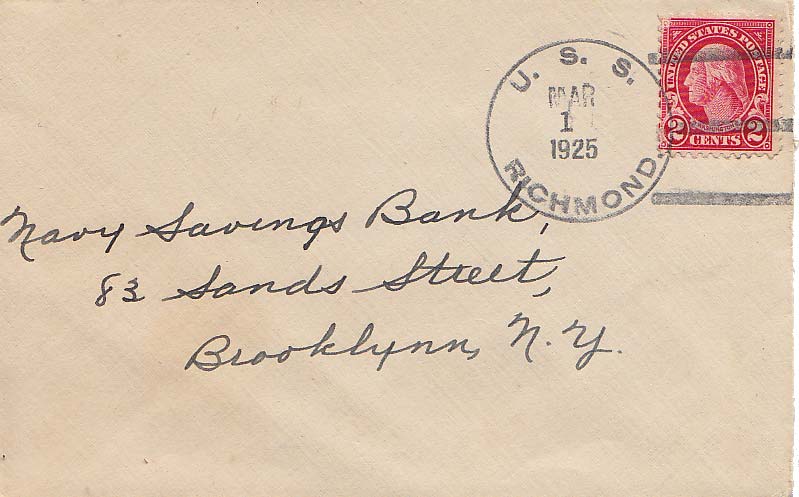 U. S. S.
MAR
1
1925
RICHMOND.
UNITED STATES POSTAGE
WASHINGTON
2 CENTS 2
Navy Savings Bank,
83 Sands Street,
Brooklynn, N. Y.